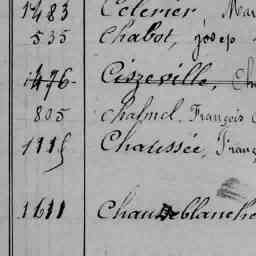 1483 Célerier, Mar
535 Chabot, josep
1476 Ciszeville, Ch
805 chasmel, François
1115 Chaussée, Franç
1611 Chaudeblanche